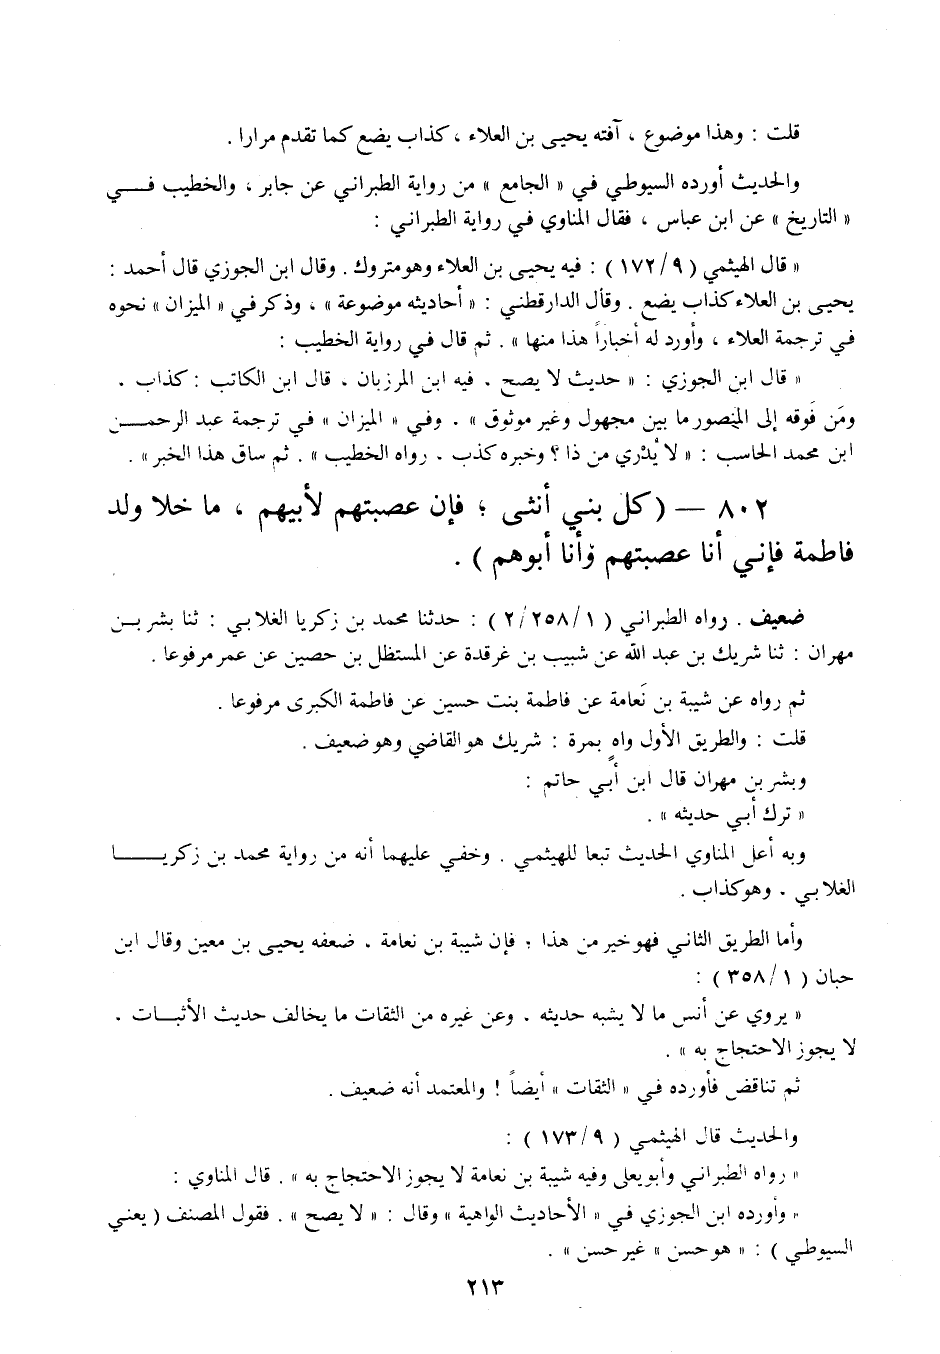 قلت : وهذا موضوع ، آفته يحيى بن العلاء ، كذاب يضع كما تقدم مرارا .
والحديث أورده السيوطي في « الجامع » من رواية الطبراني عن جابر ، والخطيب فــي
« التاريخ » عن ابن عباس ، فقال المناوي في رواية الطبراني :
« قال الهيثمي ( ٩ /١٧٢ ) : فيه يحيى بن العلاء وهو متروك . وقال ابن الجوزي قال أحمد :
يحيى بن العلاء كذاب يضع . وقال الدارقطني : « أحاديثه موضوعة » ، وذكر في « الميزان » نحوه
في ترجمة العلاء ، وأورد له أخباراً هذا منها » . ثم قال في رواية الخطيب :
« قال ابن الجوزي : « حديث لا يصح ، فيه ابن المرزبان ، قال ابن الكاتب : كذاب ،
ومَن فَوقه إلى المنصور ما بين مجهول وغير موثوق » . وفي « الميزان » في ترجمة عبد الرحمــن
ابن محمد الحاسب : « لا يُدْري من ذا ؟ وخبره كذب ، رواه الخطيب » . ثم ساق هذا الخبر » .
٨٠٢ – ( كل بني أنثى ؛ فإن عصبتهم لأبيهم ، ما خلا ولد
فاطمة فإني أنا عصبتهم وأنا أبوهم ) .
ضعيف . رواه الطبراني ( ١ /٢٥٨ /٢ ) : حدثنا محمد بن زكريا الغلابي : ثنا بشر بــن
مهران : ثنا شريك بن عبد الله عن شبيب بن غرقدة عن المستظل بن حصين عن عمر مرفوعا .
ثم رواه عن شيبة بن نَعامة عن فاطمة بنت حسين عن فاطمة الكبرى مرفوعا .
قلت : والطريق الأول واهٍ بمرة : شريك هو القاضي وهو ضعيف .
وبشر بن مهران قال ابن أبي حاتم :
« ترك أبي حديثه » .
وبه أعل المناوي الحديث تبعا للهيثمي . وخفي عليهما أنه من رواية محمد بن زكريــــا
الغلابي . وهو كذاب .
وأما الطريق الثاني فهو خير من هذا ؛ فإن شيبة بن نعامة ، ضعفه يحيى بن معين وقال ابن
حبان ( ١ /٣٥٨ ) :
« يروي عن أنس ما لا يشبه حديثه . وعن غيره من الثقات ما يخالف حديث الأثبــات .
لا يجوز الاحتجاج به » .
ثم تناقض فأورده في « الثقات » أيضاً ! والمعتمد أنه ضعيف .
والحديث قال الهيثمي ( ٩ /١٧٣ ) :
« رواه الطبراني وأبو يعلى وفيه شيبة بن نعامة لا يجوز الاحتجاج به » . قال المناوي :
« وأورده ابن الجوزي في « الأحاديث الواهية » وقال : « لا يصح » . فقول المصنف ( يعني
السيوطي ) : « هو حسن » غير حسن » .
٢١٣